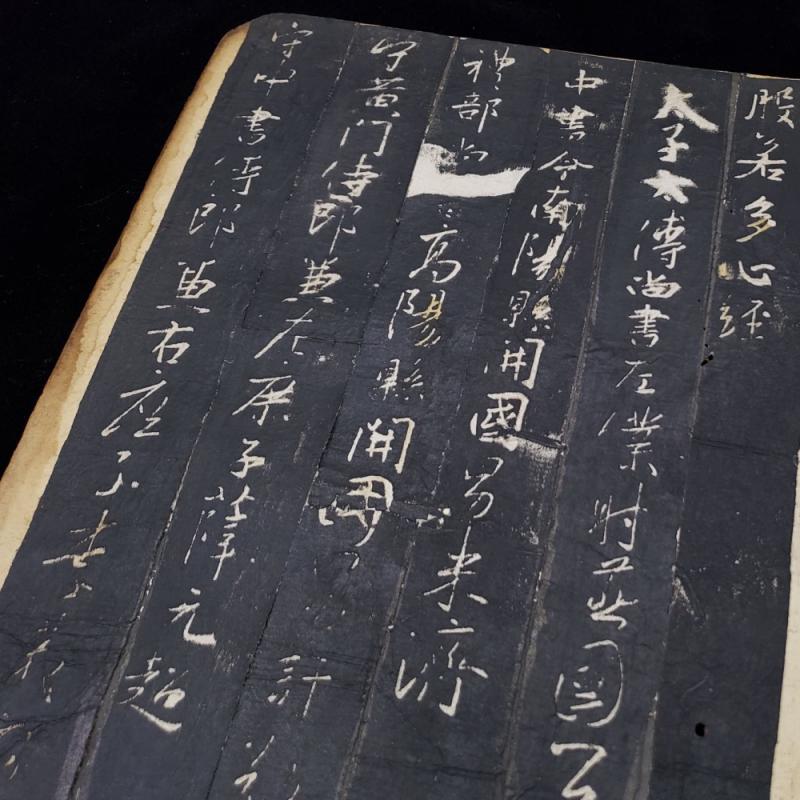 般若多心經
太子太傅尚書左僕射燕國公
中書令南陽縣開國男來濟
禮部尚高陽縣開國男許
守黃門侍郎兼左庶子薛元超
守中書侍郎兼右庶子李義府